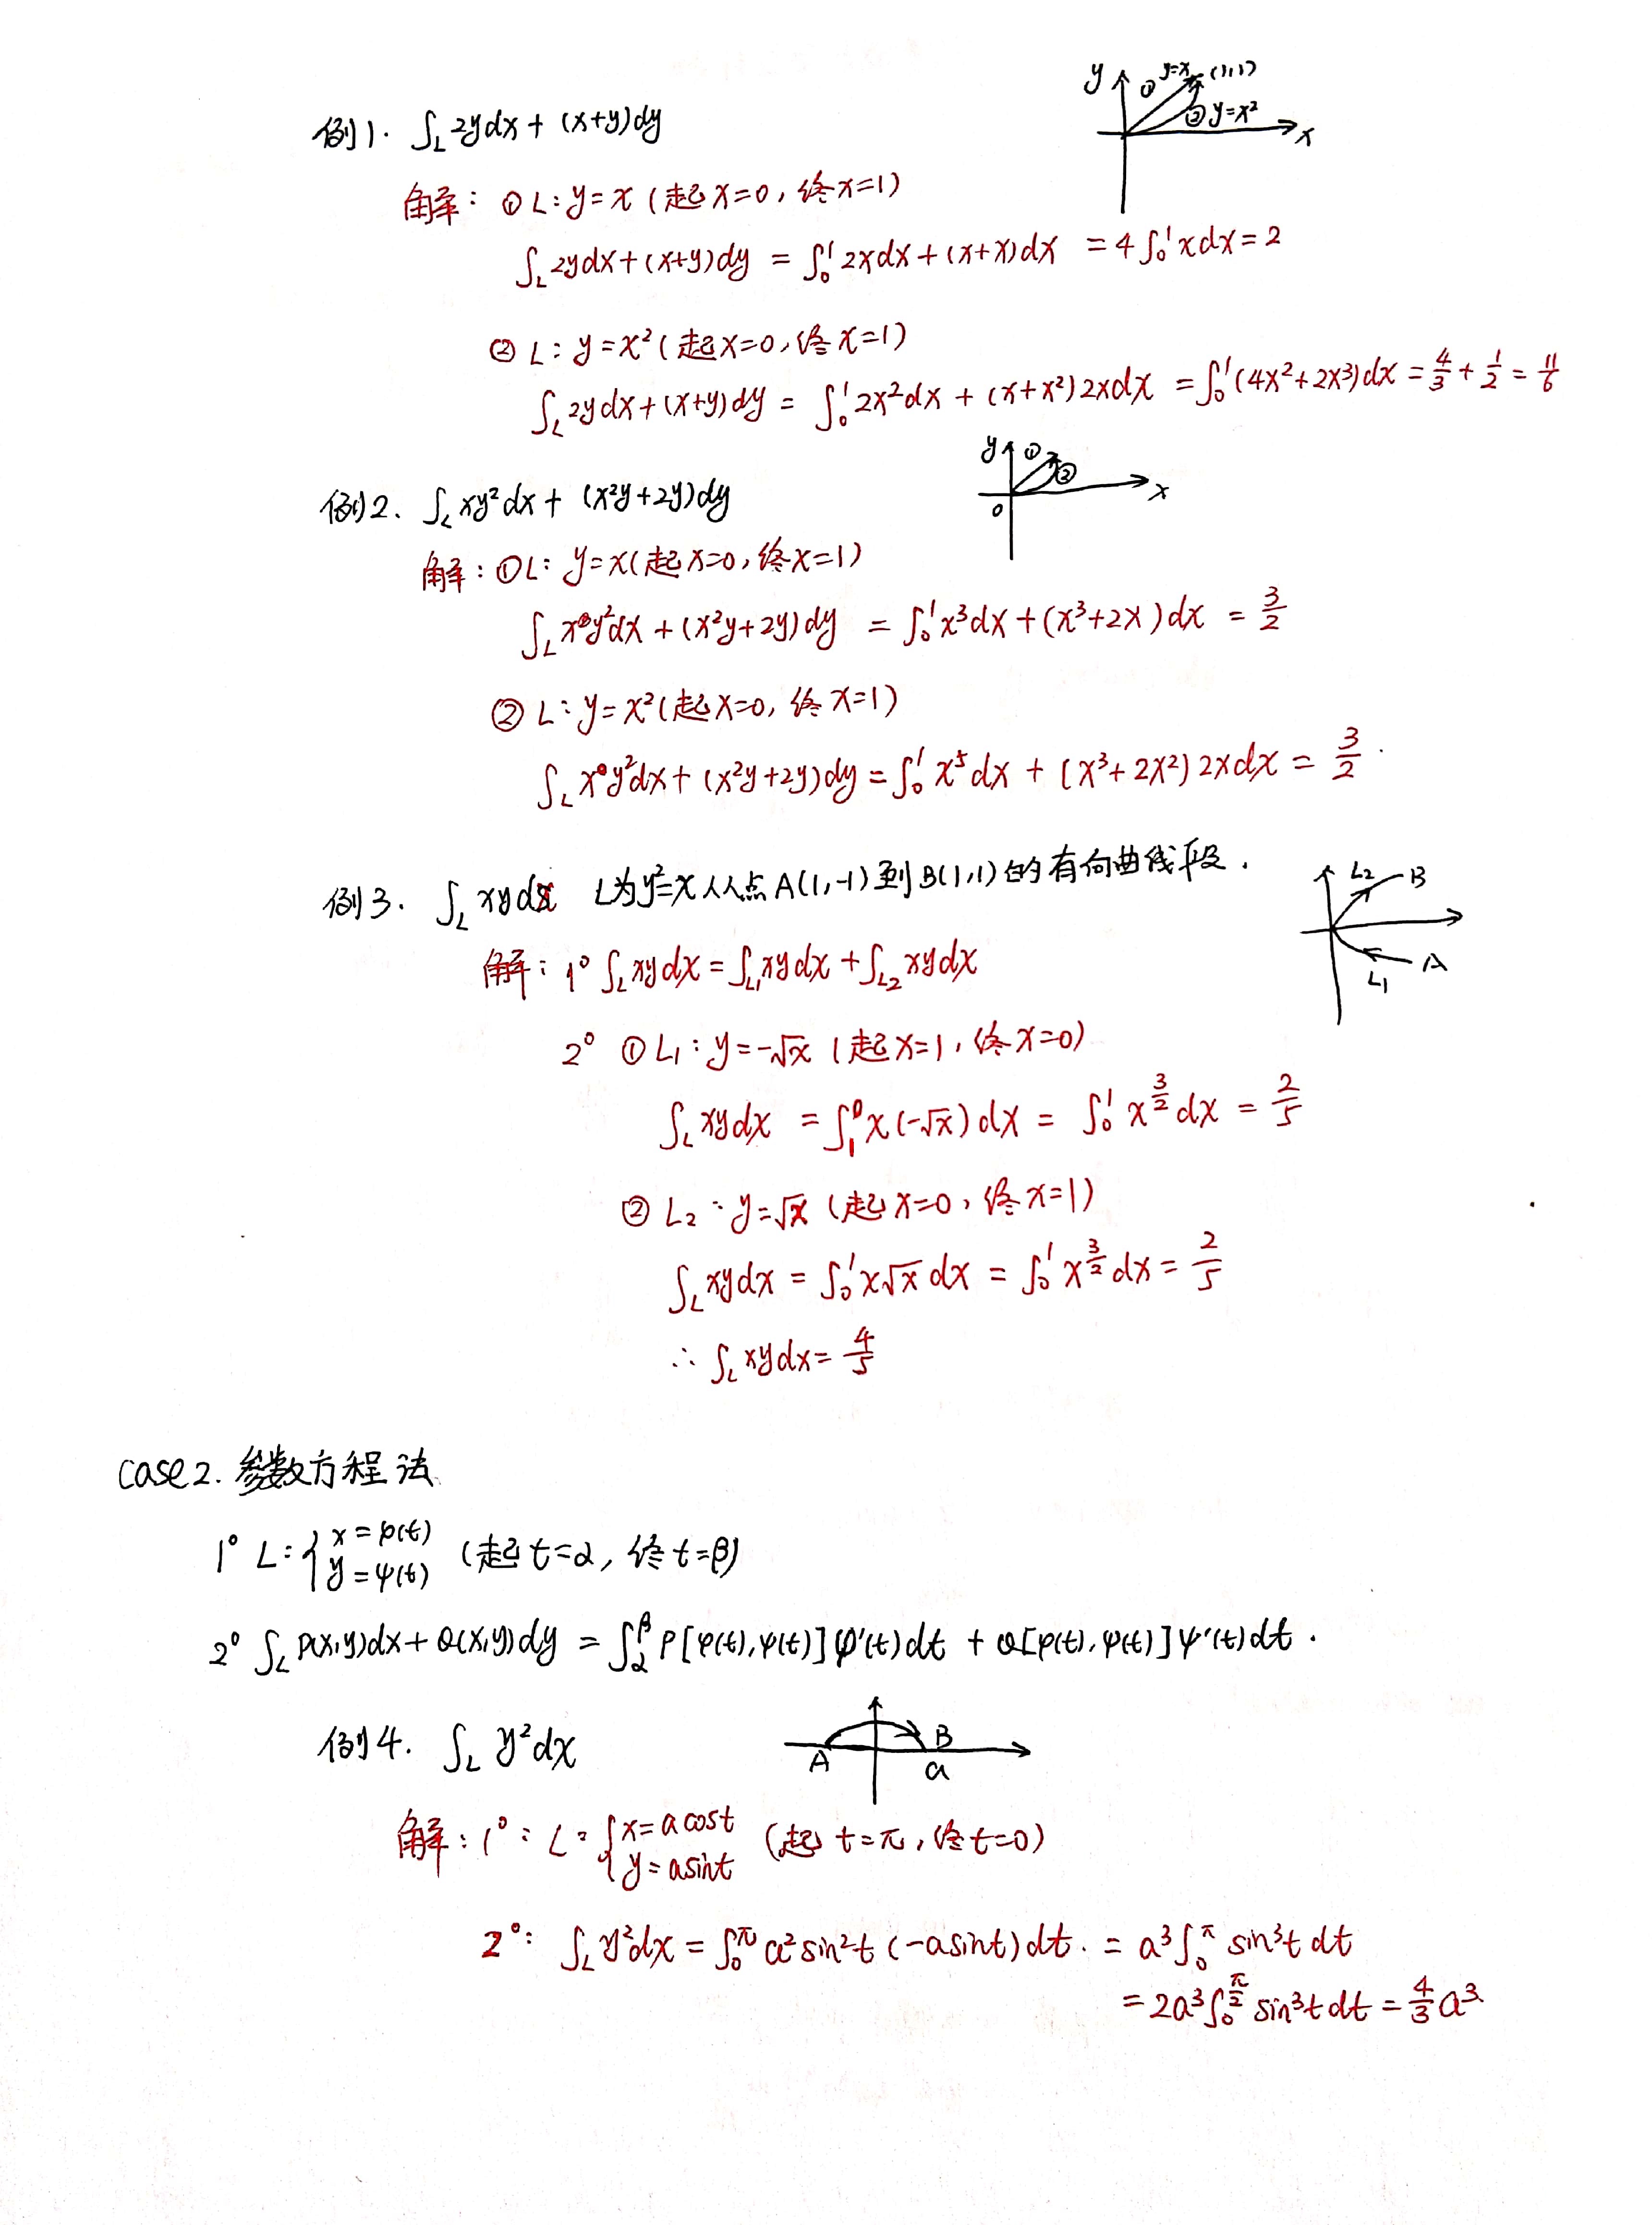 例1. ∫_L 2ydx + (x+y)dy
y ① y=x (1,1)
② y=x²
x
解: ① L: y=x (起x=0, 终x=1)
∫_L 2ydx+(x+y)dy = ∫₀¹ 2xdx+(x+x)dx = 4∫₀¹xdx=2
② L: y=x² (起x=0, 终x=1)
∫_L 2ydx+(x+y)dy = ∫₀¹ 2x²dx + (x+x²)2xdx = ∫₀¹(4x²+2x³)dx = 4/3 + 1/2 = 11/6
y ① ②
x
0
例2. ∫_L xy²dx + (x²y+2y)dy
解: ① L: y=x (起x=0, 终x=1)
∫_L xy²dx + (x²y+2y)dy = ∫₀¹x³dx+(x³+2x)dx = 3/2
② L: y=x² (起x=0, 终x=1)
∫_L xy²dx+(x²y+2y)dy = ∫₀¹ x⁵dx + (x³+2x²)2xdx = 3/2.
例3. ∫_L xydx L为y²=x从点A(1,-1)到B(1,1)的有向曲线段.
L₂ B
A
L₁
解: 1° ∫_L xydx = ∫_L₁ xydx + ∫_L₂ xydx
2° ① L₁: y=-√x (起x=1, 终x=0)
∫_L xydx = ∫₁⁰x(-√x)dx = ∫₀¹ x^(3/2) dx = 2/5
② L₂: y=√x (起x=0, 终x=1)
∫_L xydx = ∫₀¹x√x dx = ∫₀¹ x^(3/2) dx = 2/5
∴ ∫_L xydx = 4/5
case2. 参数方程法
1° L: { x=φ(t)
y=ψ(t) (起t=α, 终t=β)
2° ∫_L P(x,y)dx+Q(x,y)dy = ∫_α^β P[φ(t),ψ(t)]φ'(t)dt + Q[φ(t),ψ(t)]ψ'(t)dt.
例4. ∫_L y²dx
A B
a
解: 1°: L: { x=acost
y=asint (起t=π, 终t=0)
2°: ∫_L y²dx = ∫₀^π a²sin²t(-asint)dt. = a³∫₀^π sin³t dt
= 2a³∫₀^(π/2) sin³t dt = 4/3 a³